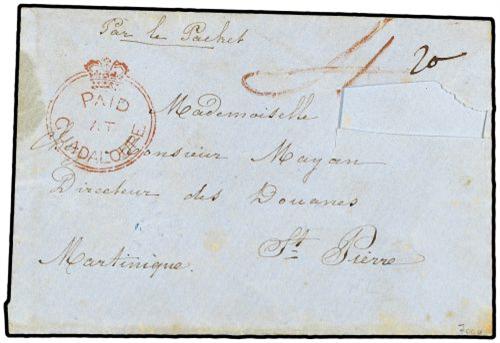 Par le Packet
20
PAID
AT
GUADALOUPE
Mademoiselle
Monsieur Mayan
Directeur des Douanes
St Pierre
Martinique.